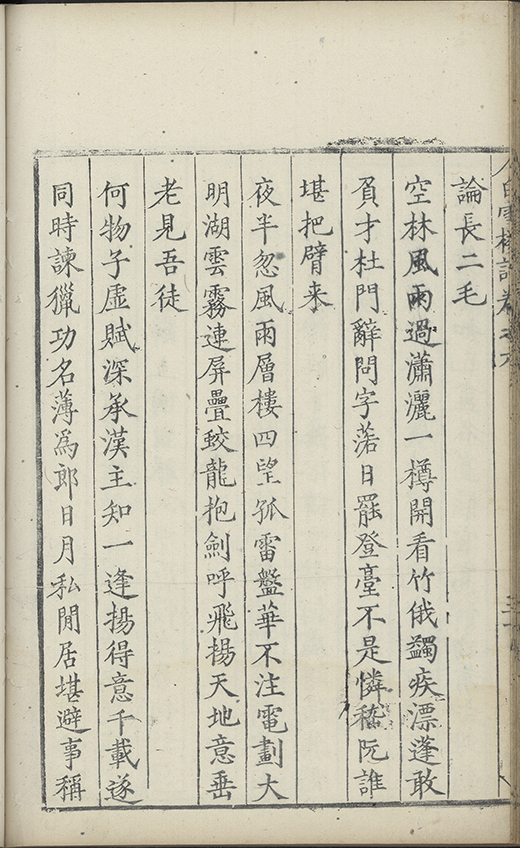 白雪樓詩卷之六
論長二毛
空林風雨過瀟灑一樽開看竹俄蠲疾漂蓬敢
負才杜門辭問字落日罷登臺不是憐嵇阮誰
堪把臂来
夜半忽風雨層樓四望孤雷盤華不注電劃大
明湖雲霧連屏疊蛟龍抱劍呼飛揚天地意垂
老見吾徒
何物子虛賦深承漢主知一逢揚得意千載遂
同時諫獵功名薄爲郎日月私閒居堪避事稱